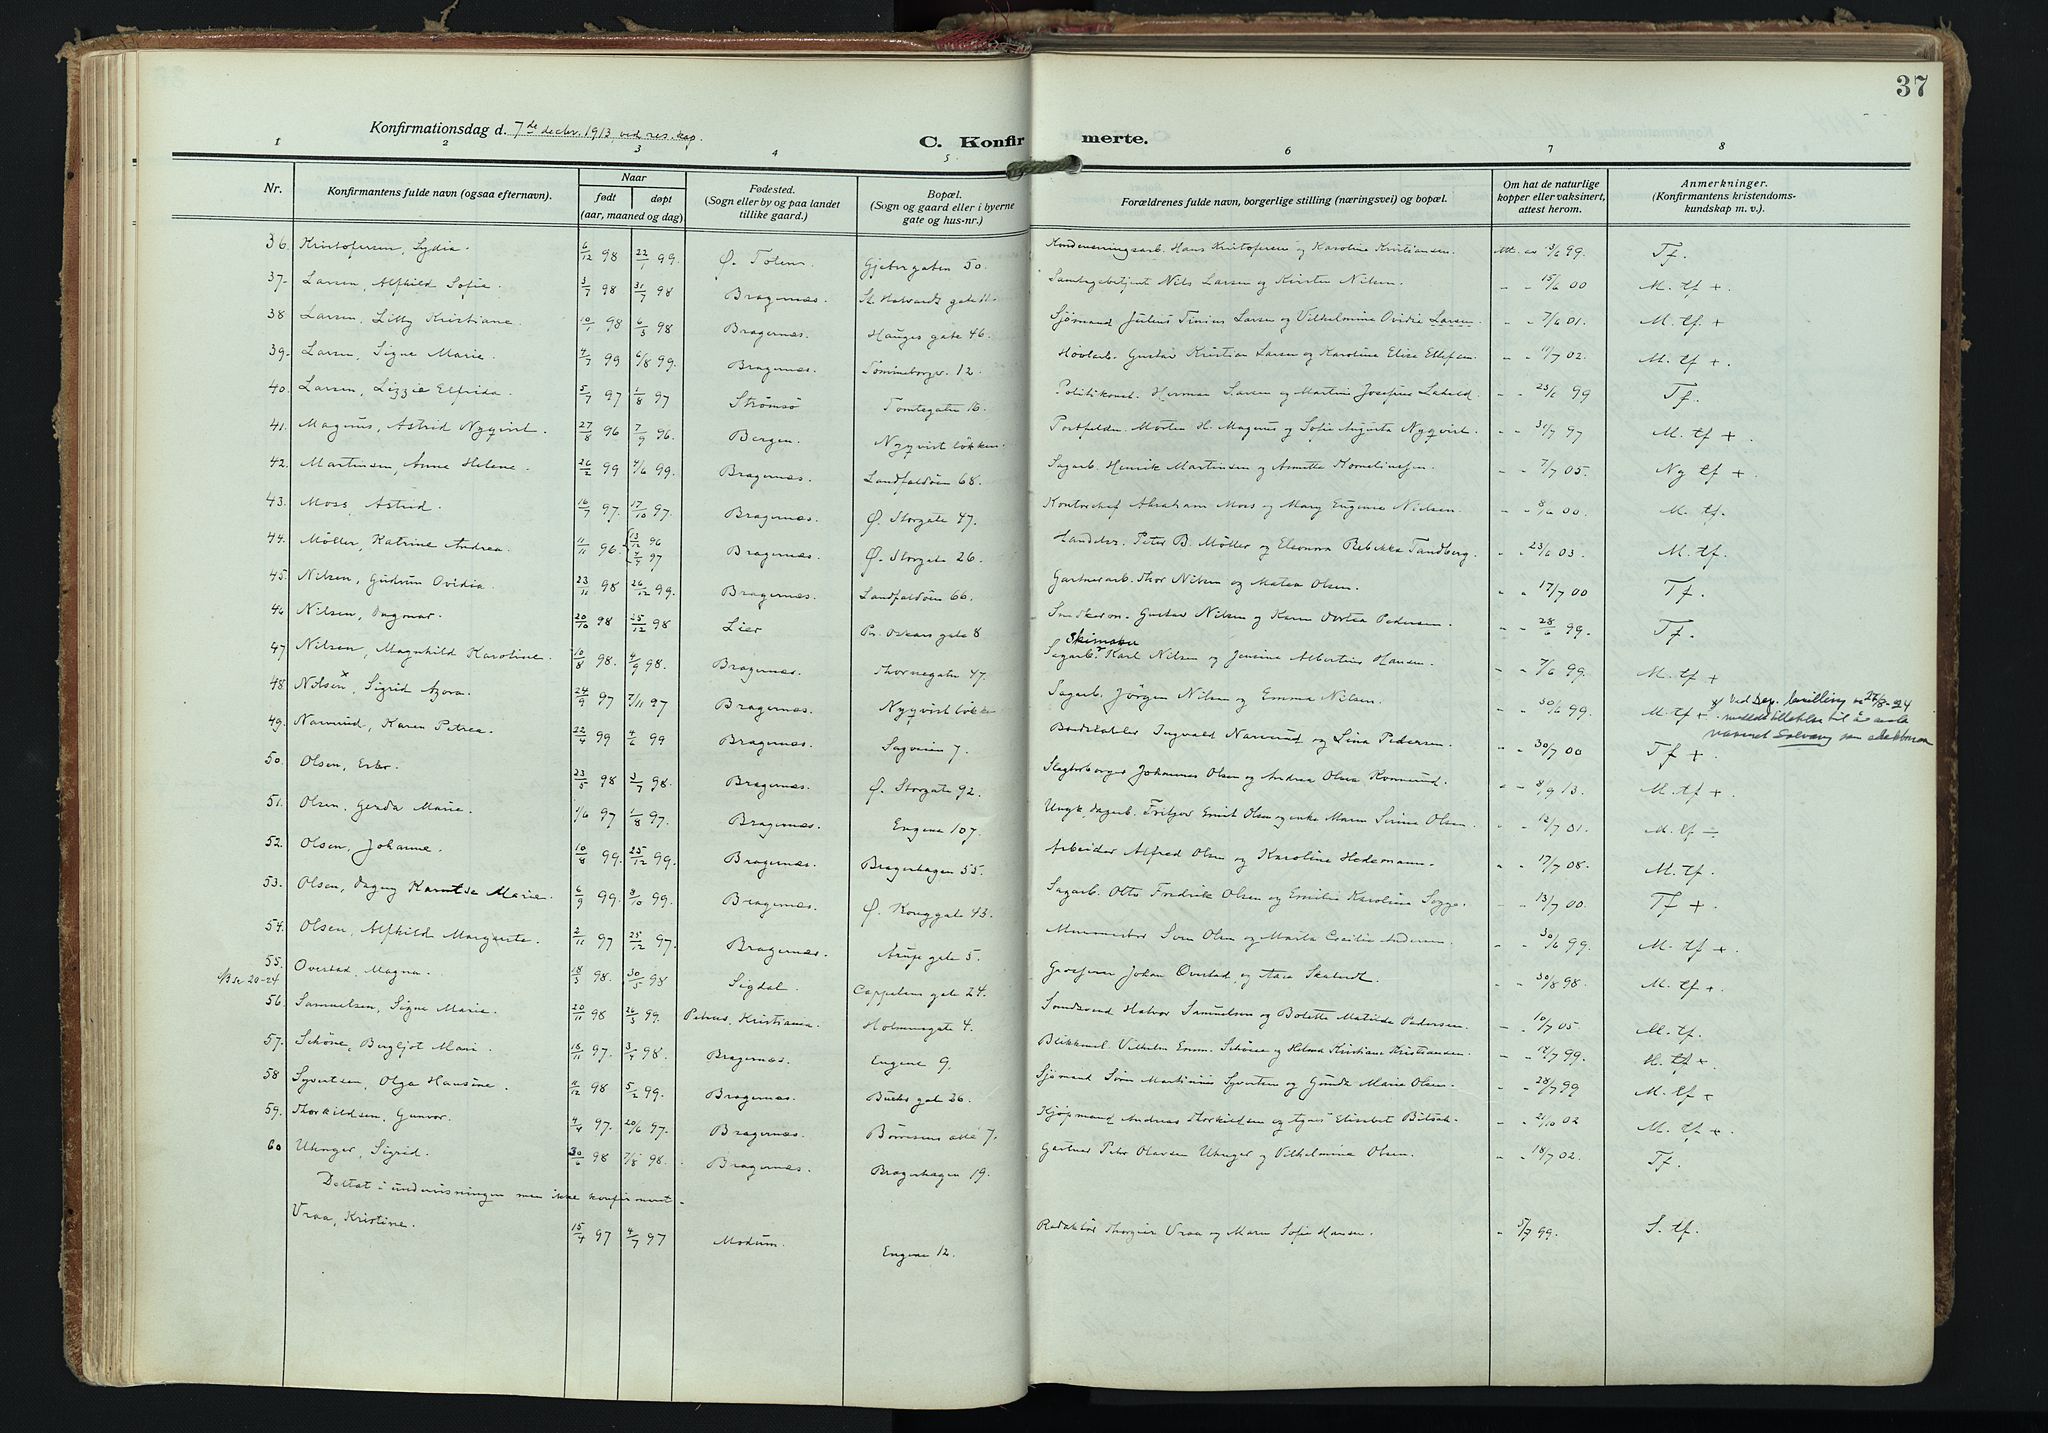 37
Konfirmationsdag d. 7de decbr. 1913, ved res. kap.
C. Konfirmerte.
1 2 3 4 5 6 7 8
Nr. Konfirmantens fulde navn (ogsaa efternavn). Naar født døpt (aar, maaned og dag) Fødested. (Sogn eller by og paa landet tillike gaard.) Bopæl. (Sogn og gaard eller i byerne gate og hus-nr.) Forældrenes fulde navn, borgerlige stilling (næringsvei) og bopæl. Om hat de naturlige kopper eller vaksinert, attest herom. Anmerkninger. (Konfirmantens kristendomskundskap m. v.).
36. Kristofersen, Sydia. 6/12 98 22/1 99. Ø. Toten Gjetergaten 50. Kondenseringsarb. Hans Kristofersen og Karoline Kristiansen. Att. av 3/6 99. Tf.
37. Larsen, Alfhild Sofie. 3/7 98 31/7 98 Bragernæs. St. Halvards gate Nils Larsen og Kirsten Nilsen. " " 15/6 00 M. tf +.
38 Larsen, Lilly Kristiane. 10/1 98 6/3 98 Bragernæs. Hauges gate 46. Sjømand Julius Tinius Larsen og Vilhelmine Ovidia Larsen. " " 7/6 01. M. tf. +
39. Larsen, Signe Marie. 4/7 99 6/8 99. Bragernæs. 12. Høvlarb. Gustav Kristian Larsen og Karoline Elise Ellefsen. " " 11/7 02. M. tf +.
40. Larsen, Lizzie Elfrida. 5/7 97 1/8 97 Strømsø Tomtegaten 16. Politikonst. Herman Larsen og Martine Josefine " " 23/6 99 Tf.
41. Magnus, Astrid Nyqvist. 27/8 96 7/9 96. Bergen. Nyqvistløkken. Postfuldm. Morten H. Magnus og Sofie Augusta Nyqvist. " " 31/7 97 M. tf +.
42. Martinsen, Anne Helene. 26/2 99 4/6 99. Bragernæs. Landfaldøien 68. Sagarb. Henrik Martinsen og Annette Korneliussen. " " 7/7 05. Ng tf +
43. Moss, Astrid. 16/7 97. 17/10 97. Bragernæs. Ø. Storgate 47. Kontorchef Abraham Moss og Mary Eugenie Nielsen. " " 8/6 00. M. tf.
44. Møller, Katrine Andrea. 11/11 96. 13/12 96 4/4 97 Bragernæs. Ø. Storgate 26. Handelsr. Peter B. Møller og Eleonora Rebekka Tandberg. " " 23/6 03. M. tf.
45. Nilsen, Gudrun Ovidia. 23/11 98 26/12 99. Bragernæs. Landfaldøien 66. Gartnerarb. Thor Nilsen og Matea Olsen. " " 17/7 00 Tf.
46 Nilsen, Dagmar. 20/10 98 25/12 98 Lier Pr. Oscars gate 8 Gustav Nilsen og Karen Dortea Pedersen. " " 28/6 99. Tf.
47 Nilsen, Magnhild Karoline. 10/8 98. 4/9 98. Bragernæs. Thornegaten 47. Sagarb. Karl Nilsen og Jensine Albertine Hansen. " " 7/6 99. M. tf +
48 Nilsen x, Sigrid Azora. 24/9 97 7/11 97 Bragernæs. Nyqvistløkken Sagarb. Jörgen Nilsen og Emma Nilsen. " " 30/6 99. M. tf +. x Ved Dep. bevilling av 27/8-24
navnet Solvang som
49. Narverud, Karen Petrea. 22/4 99 4/6 99 Bragernæs. Sagveien 7. Ingvald Narverud og Lina Pedersen. " " 30/7 00 Tf +.
50. Olsen, Ester. 23/5 98 3/7 98. Bragernæs. Ø. Storgate 92. Johannes Olsen og Andrea Olsen " " 8/9 13. M. tf +.
51. Olsen, Gerda Marie. 1/6 97 1/8 97. Bragernæs. Engene 107. Ungk. dagarb. Fritjov Ernst Olsen og enke Maren Serine Olsen. " " 12/7 01. M. tf
52. Olsen, Johanne. 10/8 99. 25/12 99. Bragernæs. Bragerhagen 55. Arbeider Alfred Olsen og Karoline Hedemann. " " 17/7 08. M. tf.
53. Olsen, Dagny Marie. 6/9 99. 8/10 99. Bragernæs. Ø. Konggate 43. Sagarb. Otto Fredrik Olsen og Emilie Karoline Sogge. " " 13/7 00. Tf +.
54. Olsen, Alfhild Margarete. 2/11 97 25/12 97. Bragernæs. Arups gate 5. Murmester Sven Olsen og Marta Cecilie Andersen. " " 30/6 99. M. tf +.
55. Overstad, Magna. 18/3 98. 30/5 98 Sigdal. Cappelens gate 24. Johan Overstad og " " 30/8 98. M. tf +.
56. Samuelsen, Signe Marie. 20/11 98 26/3 99. Petrus, Kristiania. Holmenegate 4. Halvor Samuelsen og Bolette Matilde Pedersen. " " 10/7 05. M. tf.
57. Schöne, Bergljot Mari. 18/11 97. 3/4 98. Bragernæs. Engene 9. Blikkensl. Vilhelm Emm. Schöne og Helma Kristiane Kristiansen. " " 12/7 99. M. tf +
58 Syvertsen, Olga Hansine. 11/12 98 5/2 99. Bragernæs. Buchs gate 26. Sjømand Sören Martinius Syvertsen og Gunda Marie Olsen. " " 28/7 99 M. tf +
59. Thorkildsen, Gunvor. 4/4 97. 20/6 97. Bragernæs. Børresens allé 7. Kjøpmand Andreas Thorkildsen og Agnes Elisabet " " 21/10 02 M. tf +.
60 Uhnger, Sigrid. 30/6 98 7/8 98. Bragernæs. Bragerhagen 19. Gartner Peter Olavsen Uhnger og Vilhelmina Olsen. " " 18/7 02. Tf.
Deltat i undervisningen men ikke konfirmert.
Vraa, Kristine. 15/4 97 4/7 97 Modum. Engene 12. Redaktør Thorgeir Vraa og Maren Sofie Hansen. " 5/7 99. S. tf.